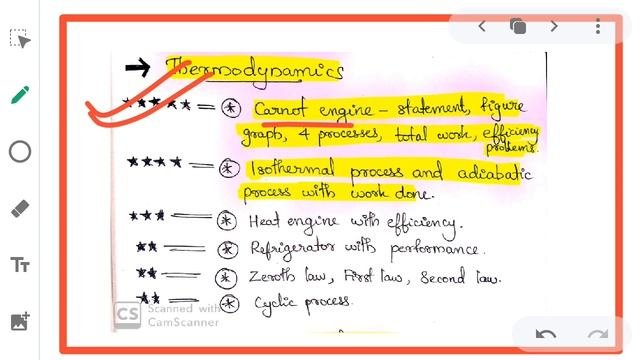 → Thermodynamics
★★★★★ = ⊛ Carnot engine – statement, figure
graph, 4 processes, total work, efficiency
problems.
★★★★ = ⊛ Isothermal process and adiabatic
process with work done.
★★★ = ⊛ Heat engine with efficiency.
★★ = ⊛ Refrigerator with performance.
★★ = ⊛ Zeroth law, First law, Second law.
★★ = ⊛ Cyclic process.
CS Scanned with
CamScanner
TT